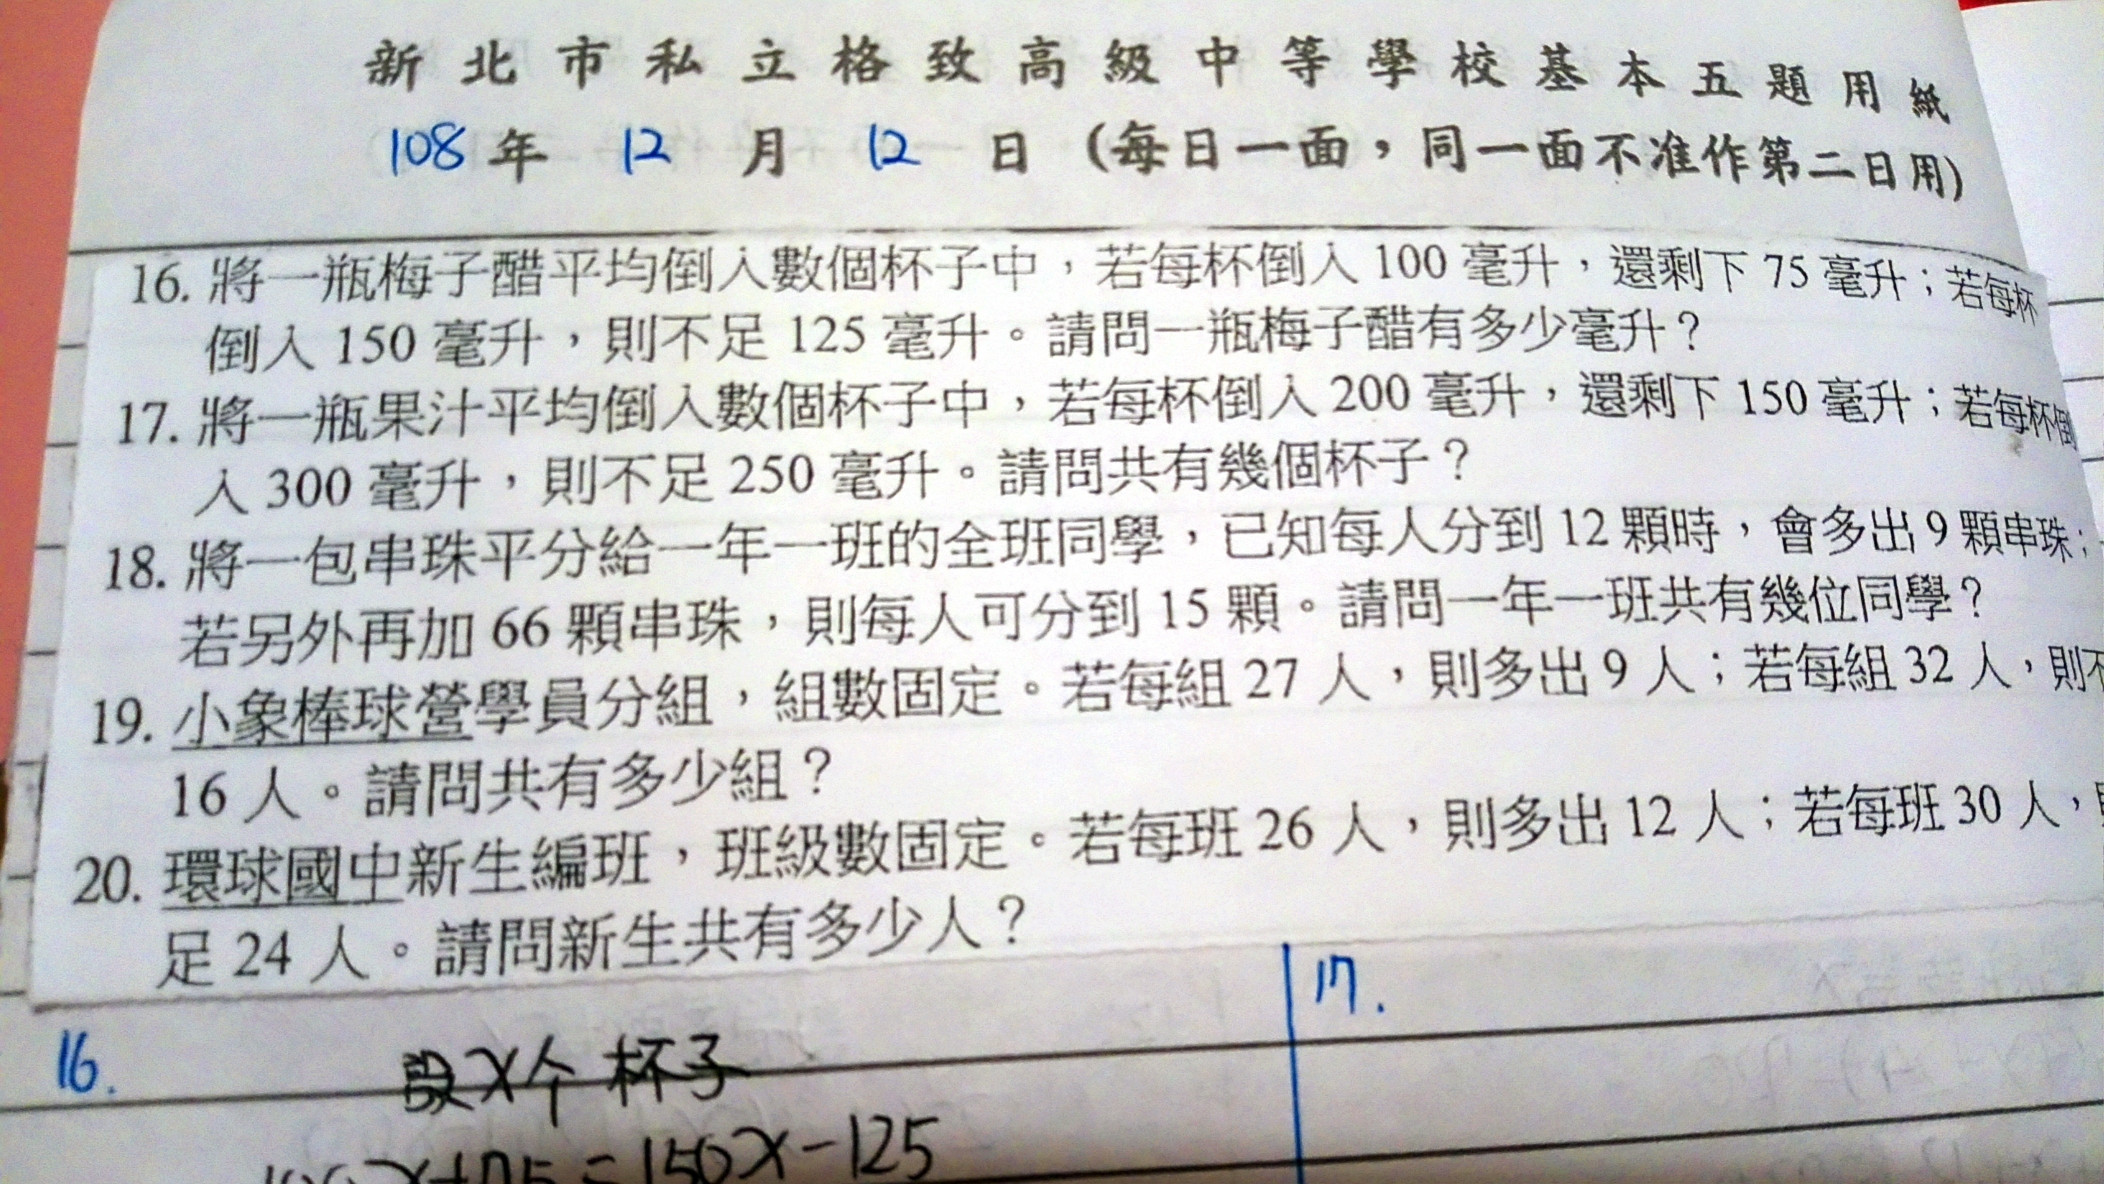 新北市私立格致高級中等學校基本五題用紙
108年 12 月 12 日 (每日一面，同一面不准作第二日用)
16. 將一瓶梅子醋平均倒入數個杯子中，若每杯倒入 100 毫升，還剩下 75 毫升；若每杯
倒入 150 毫升，則不足 125 毫升。請問一瓶梅子醋有多少毫升？
17. 將一瓶果汁平均倒入數個杯子中，若每杯倒入 200 毫升，還剩下 150 毫升；若每杯倒
入 300 毫升，則不足 250 毫升。請問共有幾個杯子？
18. 將一包串珠平分給一年一班的全班同學，已知每人分到 12 顆時，會多出 9 顆串珠；
若另外再加 66 顆串珠，則每人可分到 15 顆。請問一年一班共有幾位同學？
19. 小象棒球營學員分組，組數固定。若每組 27 人，則多出 9 人；若每組 32 人，則不
16 人。請問共有多少組？
20. 環球國中新生編班，班級數固定。若每班 26 人，則多出 12 人；若每班 30 人，
足 24 人。請問新生共有多少人？
16. 設X个杯子
17.
100X+75=150X-125